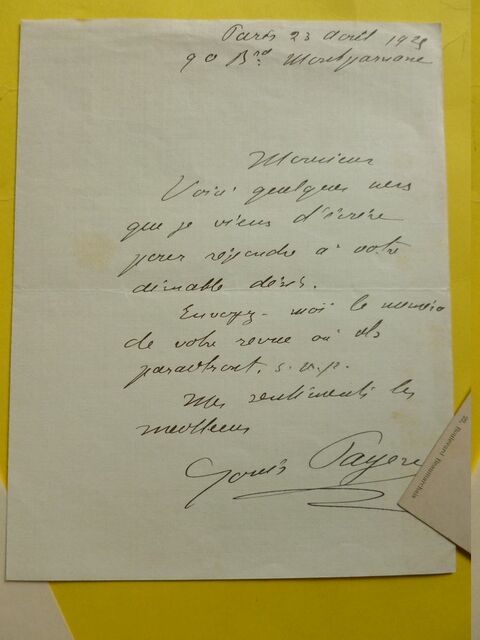 Paris 23 avril 1925
90 Bd Montparnasse
Monsieur
Voici quelques vers
que je viens d'écrire
pour répondre à votre
aimable désir.
Envoyez-moi le numéro
de votre revue où ils
paraîtront, s.v.p.
Mes sentiments les
meilleurs
Louis Payen
22, Boulevard Beaumarchais